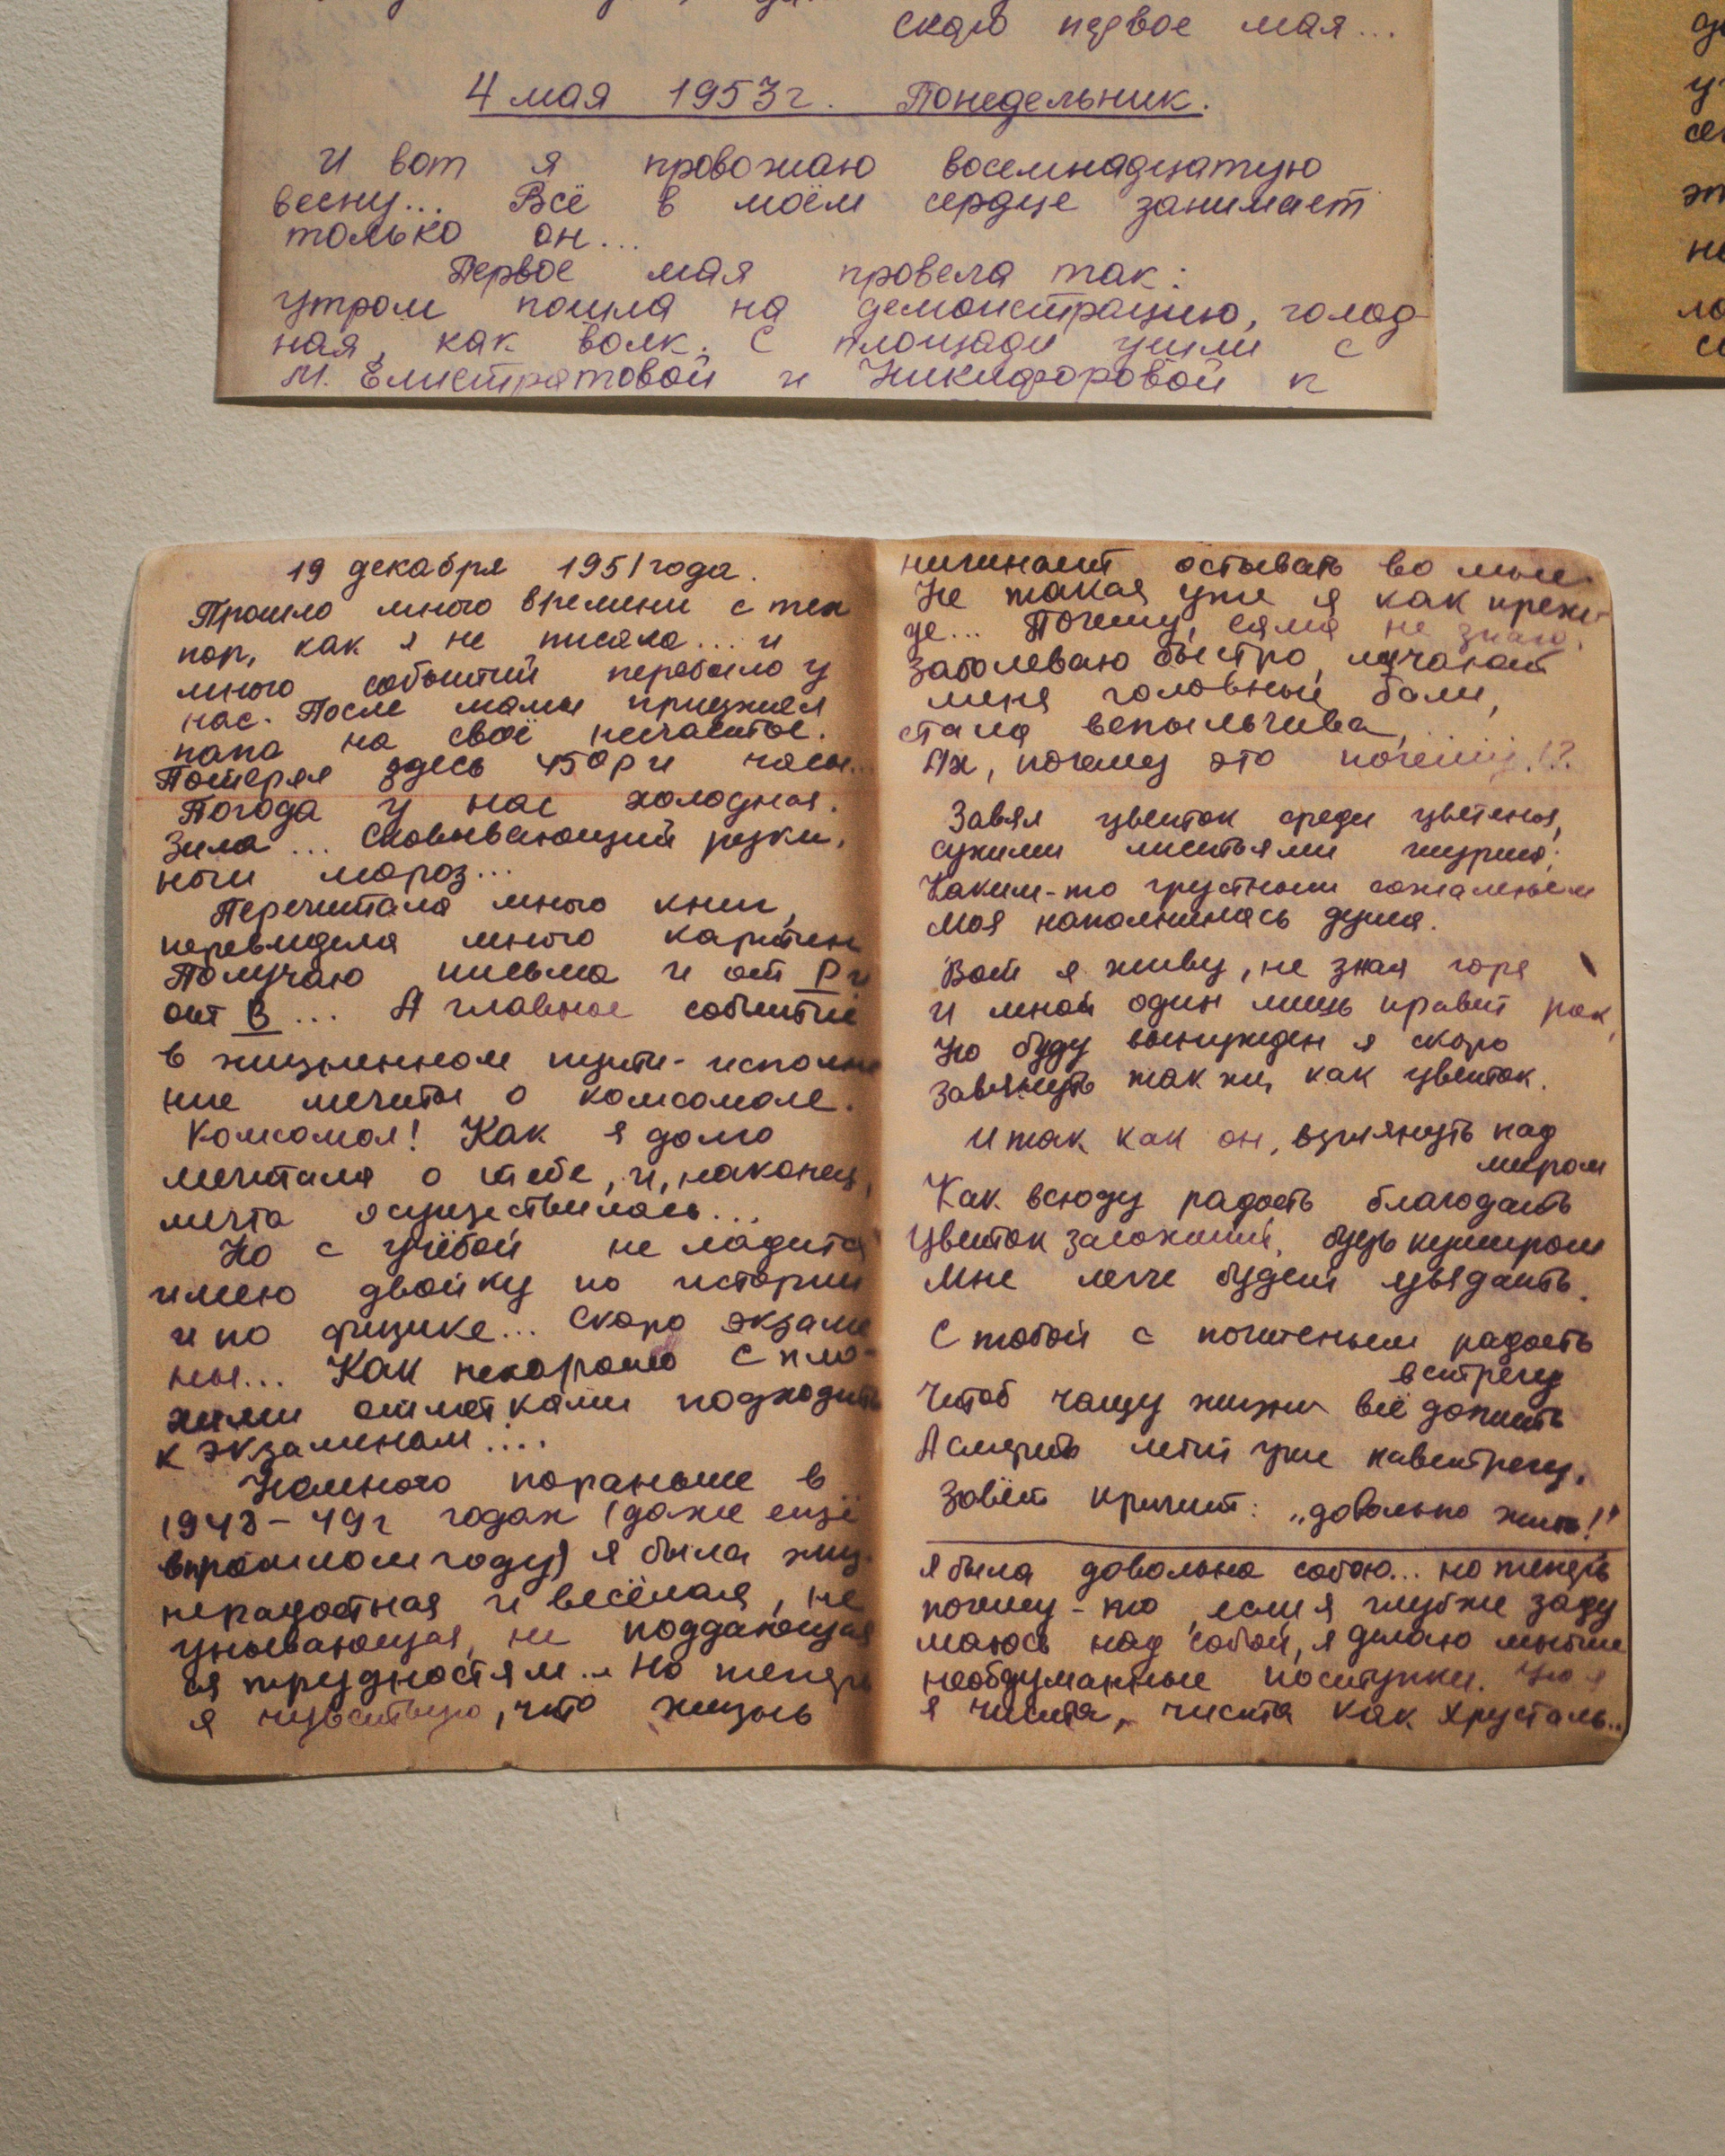 скаю первое мая...
4 мая 1953г. Понедельник.
И вот я провожаю восемнадцатую
весну... Всё в моём сердце занимает
только он...
Первое мая провела так:
утром пошла на демонстрацию, голод-
ная, как волк. С площади ушли с
М. Елистратовой и Никифоровой к
19 декабря 1951 года.
Прошло много времени с тех
пор, как я не писала... и
много событий перебыло у
нас. После мамы приезжал
папа на своё несчастье.
Потерял здесь 450р и часы...
Погода у нас холодная.
Зима... Сковывающий руки,
ноги мороз...
Перечитала много книг,
перевидела много картин
Получаю письма и от Р и
от В... А главное событие
в жизненном пути - исполне
ние мечты о комсомоле.
Комсомол! Как я долго
мечтала о тебе, и, наконец,
мечта осуществилась...
Но с учёбой не ладится
имею двойку по истории
и по физике... Скоро экзаме
ны... Как нехорошо с пло-
хими отметками подходить
к экзаменам....
Немного пораньше в
1948-49г годах (даже ещё
в прошлом году) я была жиз-
нерадостная и весёлая, не
унывающая, не поддающая
ся трудностям... Но теперь
я чувствую, что жизнь
начинает остывать во мне.
Не такая уже я как преж-
де... Почему, сама не знаю.
Заболеваю быстро, мучают
меня головные боли,
стала вспыльчива,
Ах, почему это почему!?
Завял цветок среди цветенья,
сухими листьями шурша;
Каким-то грустным сожаленьем
Моя наполнилась душа.
Вот я живу, не зная горя
И мной один лишь правит рок,
Но буду вынужден я скоро
Завянуть так же, как цветок.
И так как он, взглянуть над
миром
Как всюду радость благодать
Цветок засохший, будь кумиром
Мне легче будет увядать.
С тобой с почтеньем радость
встречу
Чтоб чашу жизни всё допить
А смерть летит уже навстречу.
Зовёт кричит: „довольно жить!"
Я была довольна собою... но теперь
почему-то, если я глубже заду
маюсь над собой, я делаю многие
необдуманные поступки. Но я
я чиста, чиста как хрусталь..